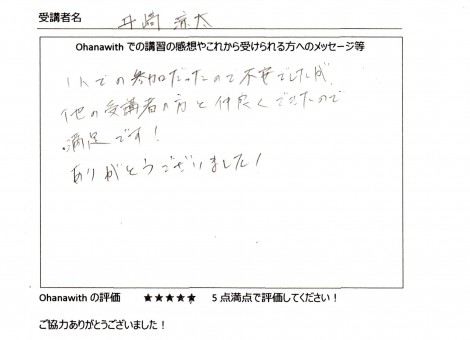 受講者名 井崎 涼太
Ohanawith での講習の感想やこれから受けられる方へのメッセージ等
1人での参加だったので不安でしたが、
他の受講者の方と仲良くできたので
満足です！
ありがとうございました！
Ohanawith の評価 ★★★★★ 5 点満点で評価してください！
ご協力ありがとうございました！